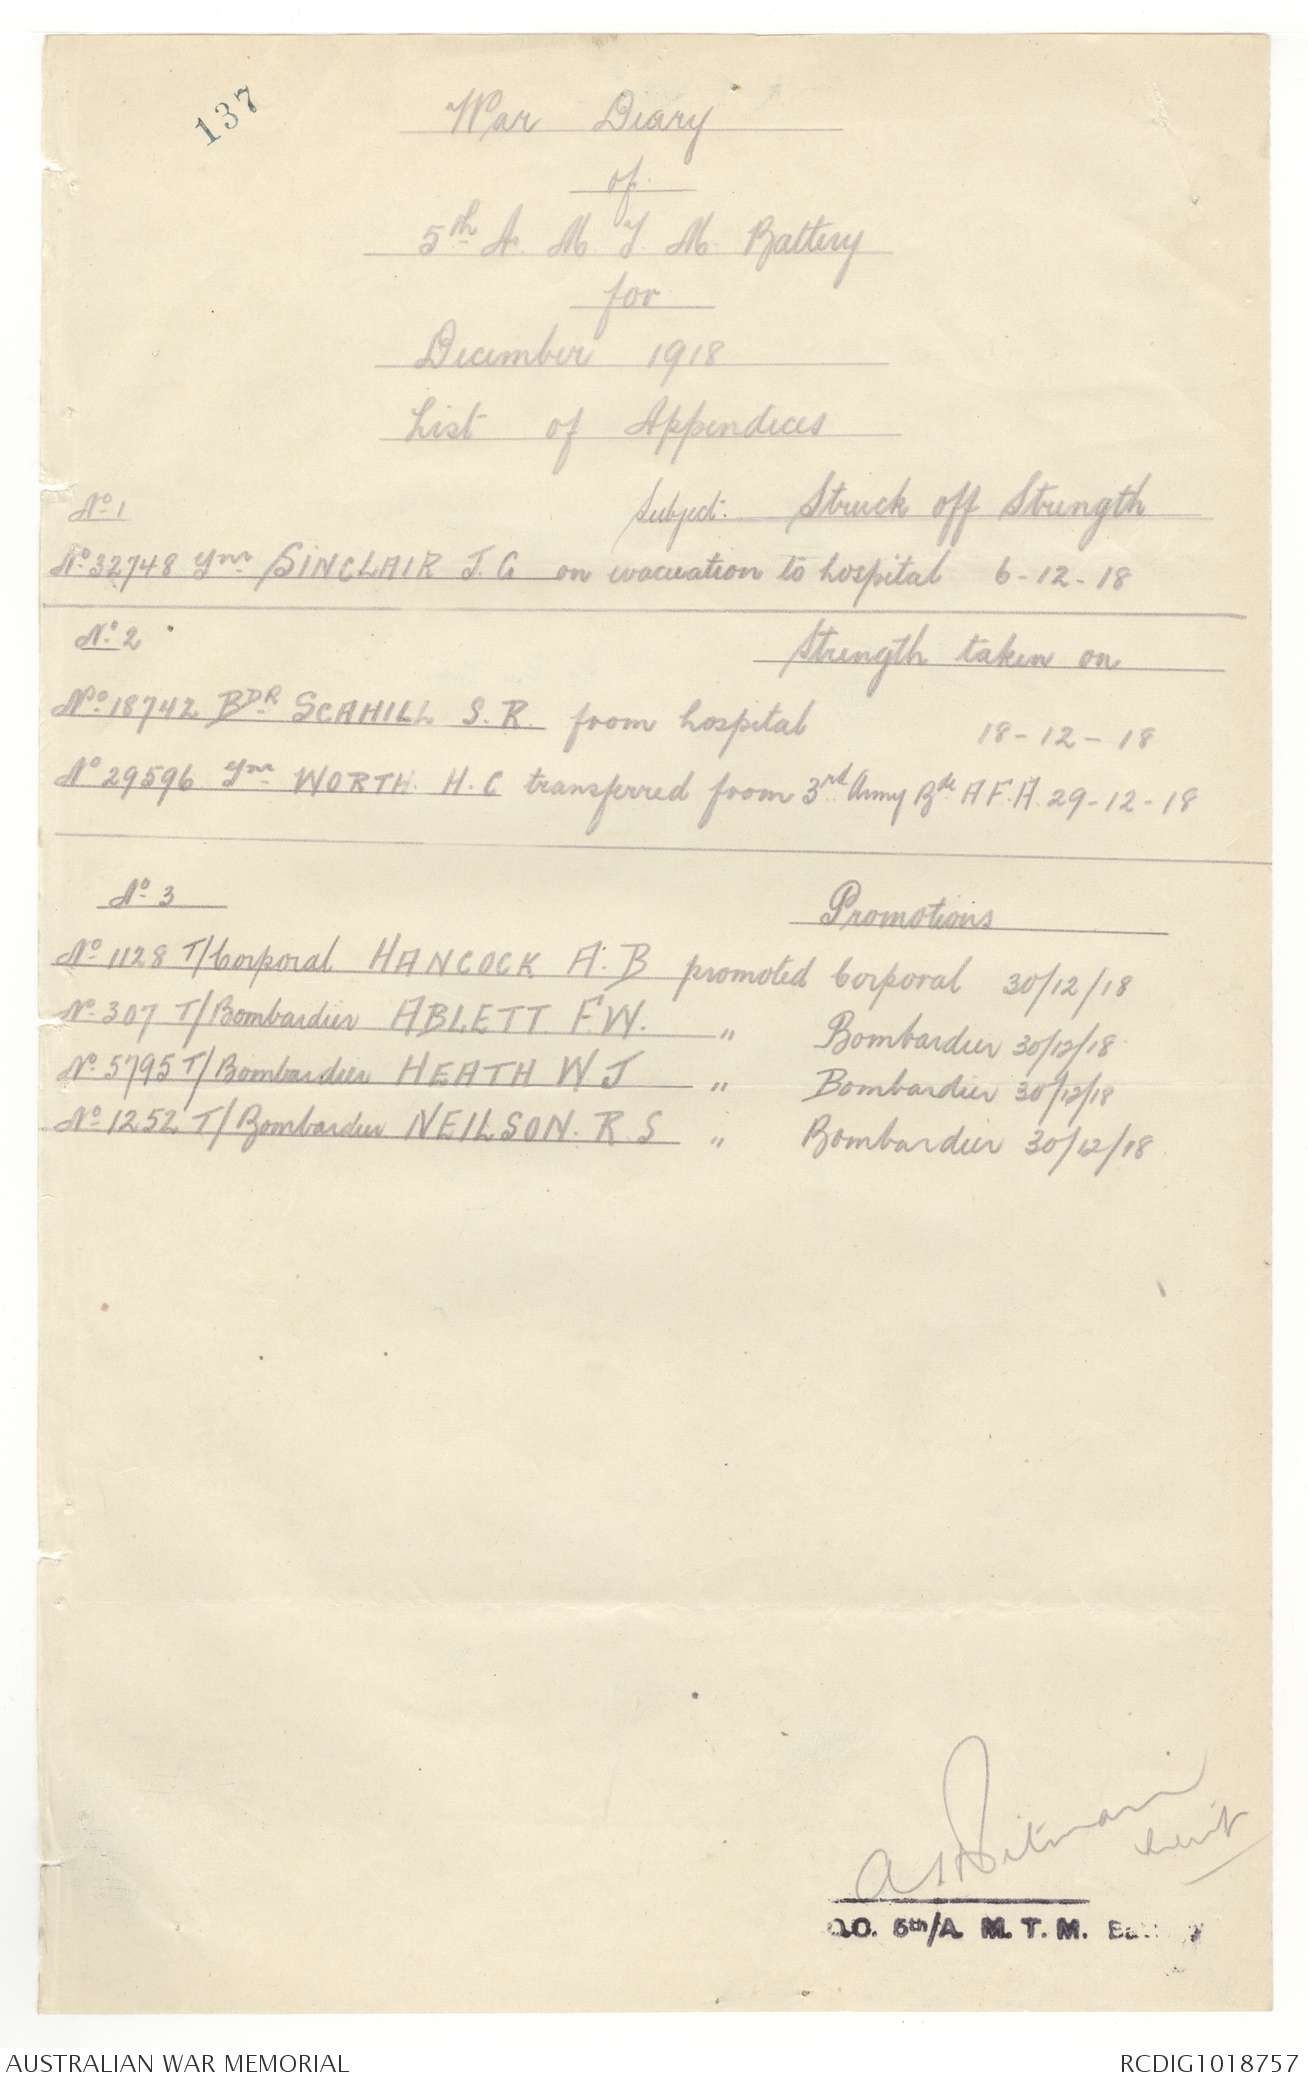 137
War Diary
of
5th A. M. T. M. Battery
for
December 1918
List of Appendices
No 1 Subject: Struck off Strength
No 32748 Gnr SINCLAIR J. G on evacuation to hospital 6-12-18
No 2 Strength taken on
No 18742 BDR SCAHILL S. R. from hospital 18-12-18
No 29596 Gnr WORTH. H. C transferred from 3rd Army Bde A F. A. 29-12-18
No 3 Promotions
No 1128 T/Corporal HANCOCK A. B promoted Corporal 30/12/18
No 307 T/Bombardier ABLETT F W. " Bombardier 30/12/18
No 5795 T/Bombardier HEATH W J " Bombardier 30/12/18
No 1252 T/Bombardier NEILSON. R. S " Bombardier 30/12/18
Pitman
Lieut
O.C. 5th/A. M. T. M.
AUSTRALIAN WAR MEMORIAL RCDIG1018757